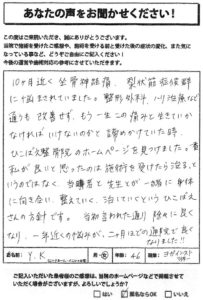 あなたの声をお聞かせください！
この度はご来院いただき、誠にありがとうございます。
当院で施術を受けたご感想や、施術を受ける前と受けた後の症状の変化、また気に
なっている事など、どうぞご自由にご記入ください！
今後の運営や施術対応の参考にさせていただきます。
10ヶ月近く坐骨神経痛、梨状筋症候群
に悩まされていました。整形外科、ハリ治療など
通うも改善せず、もう一生この痛みと生きていか
なければいけないのかと諦めかけていた時、
ひこばえ整骨院のホームページを見つけました。
私が良いと思ったのは施術を受けたら治る
というのではなく、当事者と先生とが一緒に身体
に向き合い、整えていく、治していくというひこばえ
さんの方針です。当初言われた通り徐々に良く
なり、一年近くの悩みが、二ヶ月ほどの通院で良く
なりました!!
お名前
Y.K
男・女
年齢
46
ヨガインストラクター
ご記入いただいた患者様のご感想は、当院のホームページなどで掲載させて
いただく場合がございますが、よろしいでしょうか？
はい
匿名ならOK
いいえ